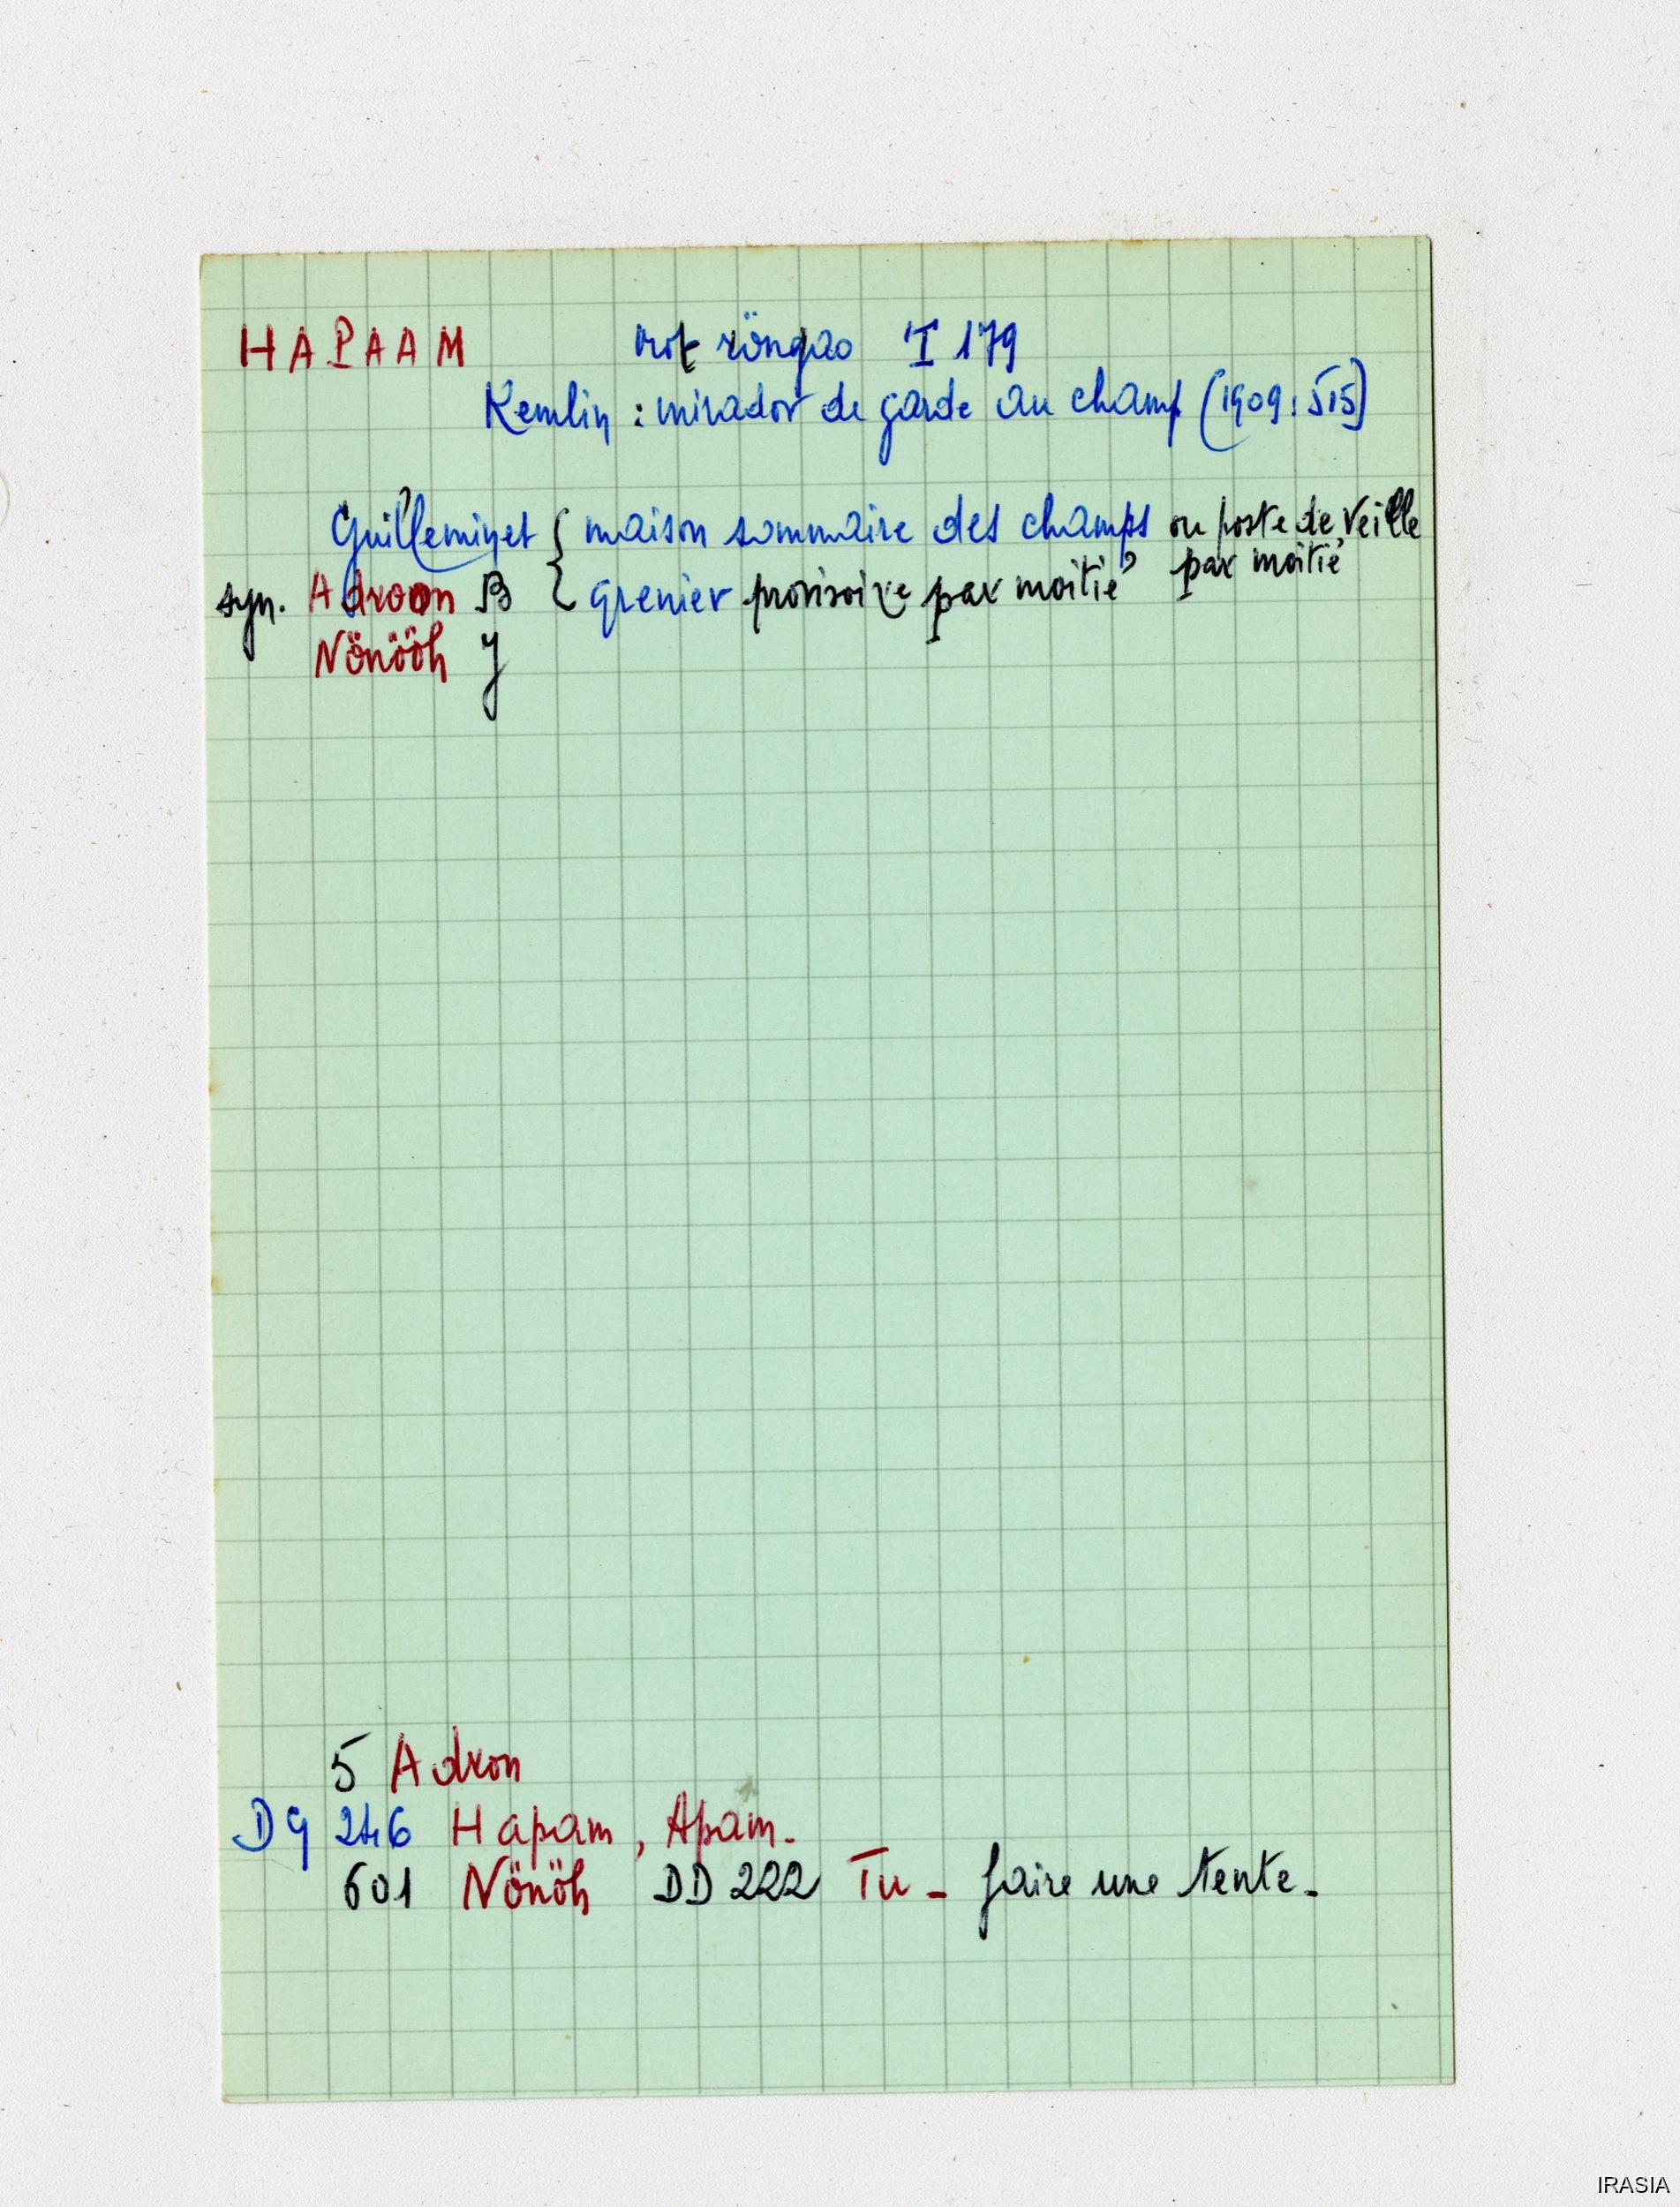 HAPAAM mot röngao I 179
Kemlin : mirador de garde au champ (1909:515)
Guilleminet { maison sommaire des champs ou poste de veille
par moitié
syn. Adroon B grenier provisoire par moitié
Nönööh J
5 Adron
DG 246 Hapam, Apam.
601 Nönöh DD 222 Tu - faire une tente.
IRASIA